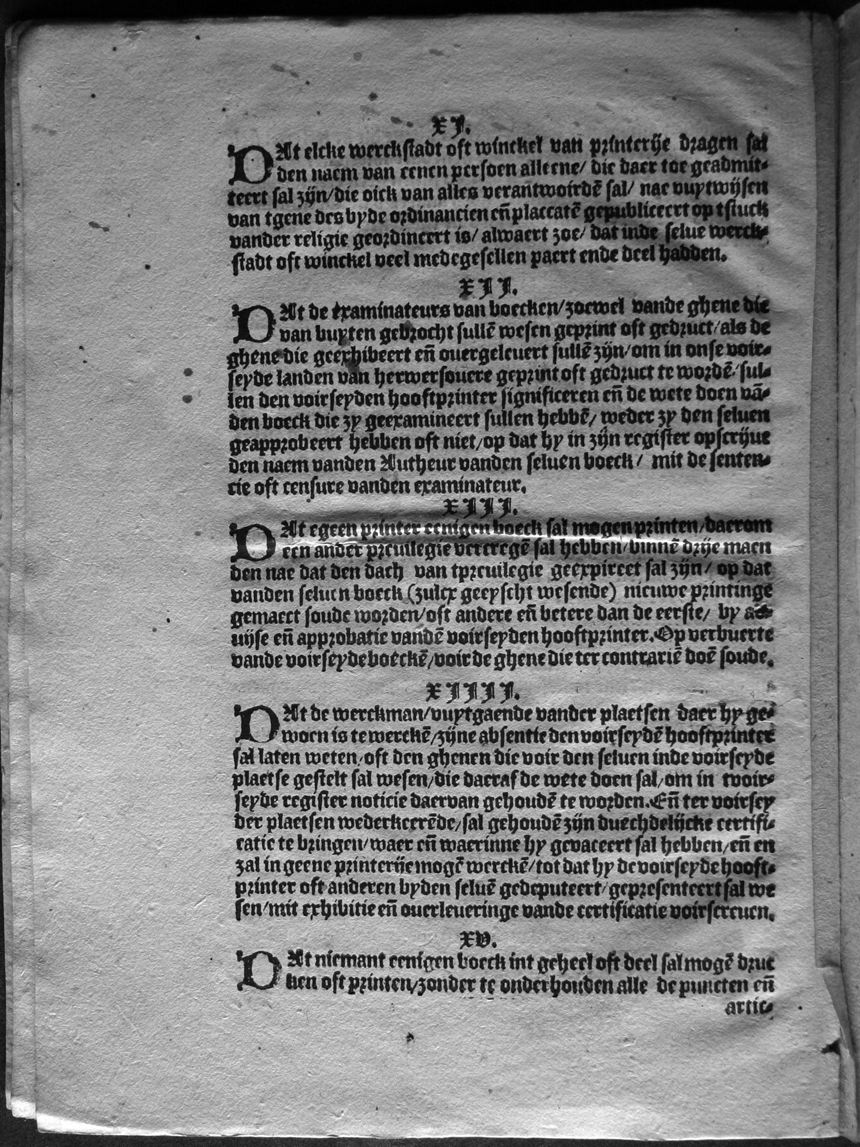 XI.
DAt elcke werckstadt oft winckel van printerije dragen sal
den naem van eenen persoen alleene/ die daer toe geadmit-
teert sal zijn/die oick van alles verantwoirdē sal/ nae vuytwijsen
van tgene des byde ordinancien eñ placcatē gepubliceert op tstuck
vander religie geordineert is/ alwaert zoe/ dat inde selue werck-
stadt oft winckel veel medegesellen paert ende deel hadden.
XII.
DAt de examinateurs van boecken/zoewel vande ghene die
van buyten gebrocht sullē wesen geprint oft gedruct/als de
ghene die geexhibeert eñ ouergeleuert sullē zijn/om in onse voir-
seyde landen van herwersouere geprint oft gedruct te wordē/sul-
len den voirseyden hooftprinter significeren eñ de wete doen vā-
den boeck die zy geexamineert sullen hebbē/ weder zy den seluen
geapprobeert hebben oft niet/op dat hy in zijn register opscrijue
den naem vanden Autheur vanden seluen boeck/ mit de senten-
cie oft censure vanden examinateur.
XIII.
DAt egeen printer eenigen boeck sal mogen printen/daerom
een ander preuilegie vercregē sal hebben/binnē drije maen
den nae dat den dach van tpreuilegie geexpireet sal zijn/ op dat
vanden seluen boeck (zulcx geeyscht wesende) nieuwe printinge
gemaect soude worden/oft andere eñ betere dan de eerste/ by ad-
uijse eñ approbatie vandē voirseyden hooftprinter. Op verbuerte
vande voirseyde boeckē/voir de ghene die ter contrariē doē soude.
XIIII.
DAt de werckman/vuytgaende vander plaetsen daer hy ge-
woen is te werckē/zijne absentie den voirseydē hooftprinter
sal laten weten/oft den ghenen die voir den seluen inde voirseyde
plaetse gestelt sal wesen/die daeraf de wete doen sal/om in tvoir-
seyde register noticie daervan gehoudē te worden. Eñ ter voirsey
der plaetsen wederkeerēde/sal gehoudē zijn duechdelijcke certifi-
catie te bringen/waer eñ waerinne hy gevaceert sal hebben/eñ en
zal in geene printerije mogē werckē/tot dat hy de voirseyde hooft-
printer oft anderen byden seluē gedeputeert/gepresenteert sal we
sen/mit exhibitie eñ ouerleueringe vande certificatie voirscreuen.
XV.
DAt niemant eenigen boeck int geheel oft deel sal mogē druc
ken oft printen/zonder te onderhouden alle de puncten eñ
artic-